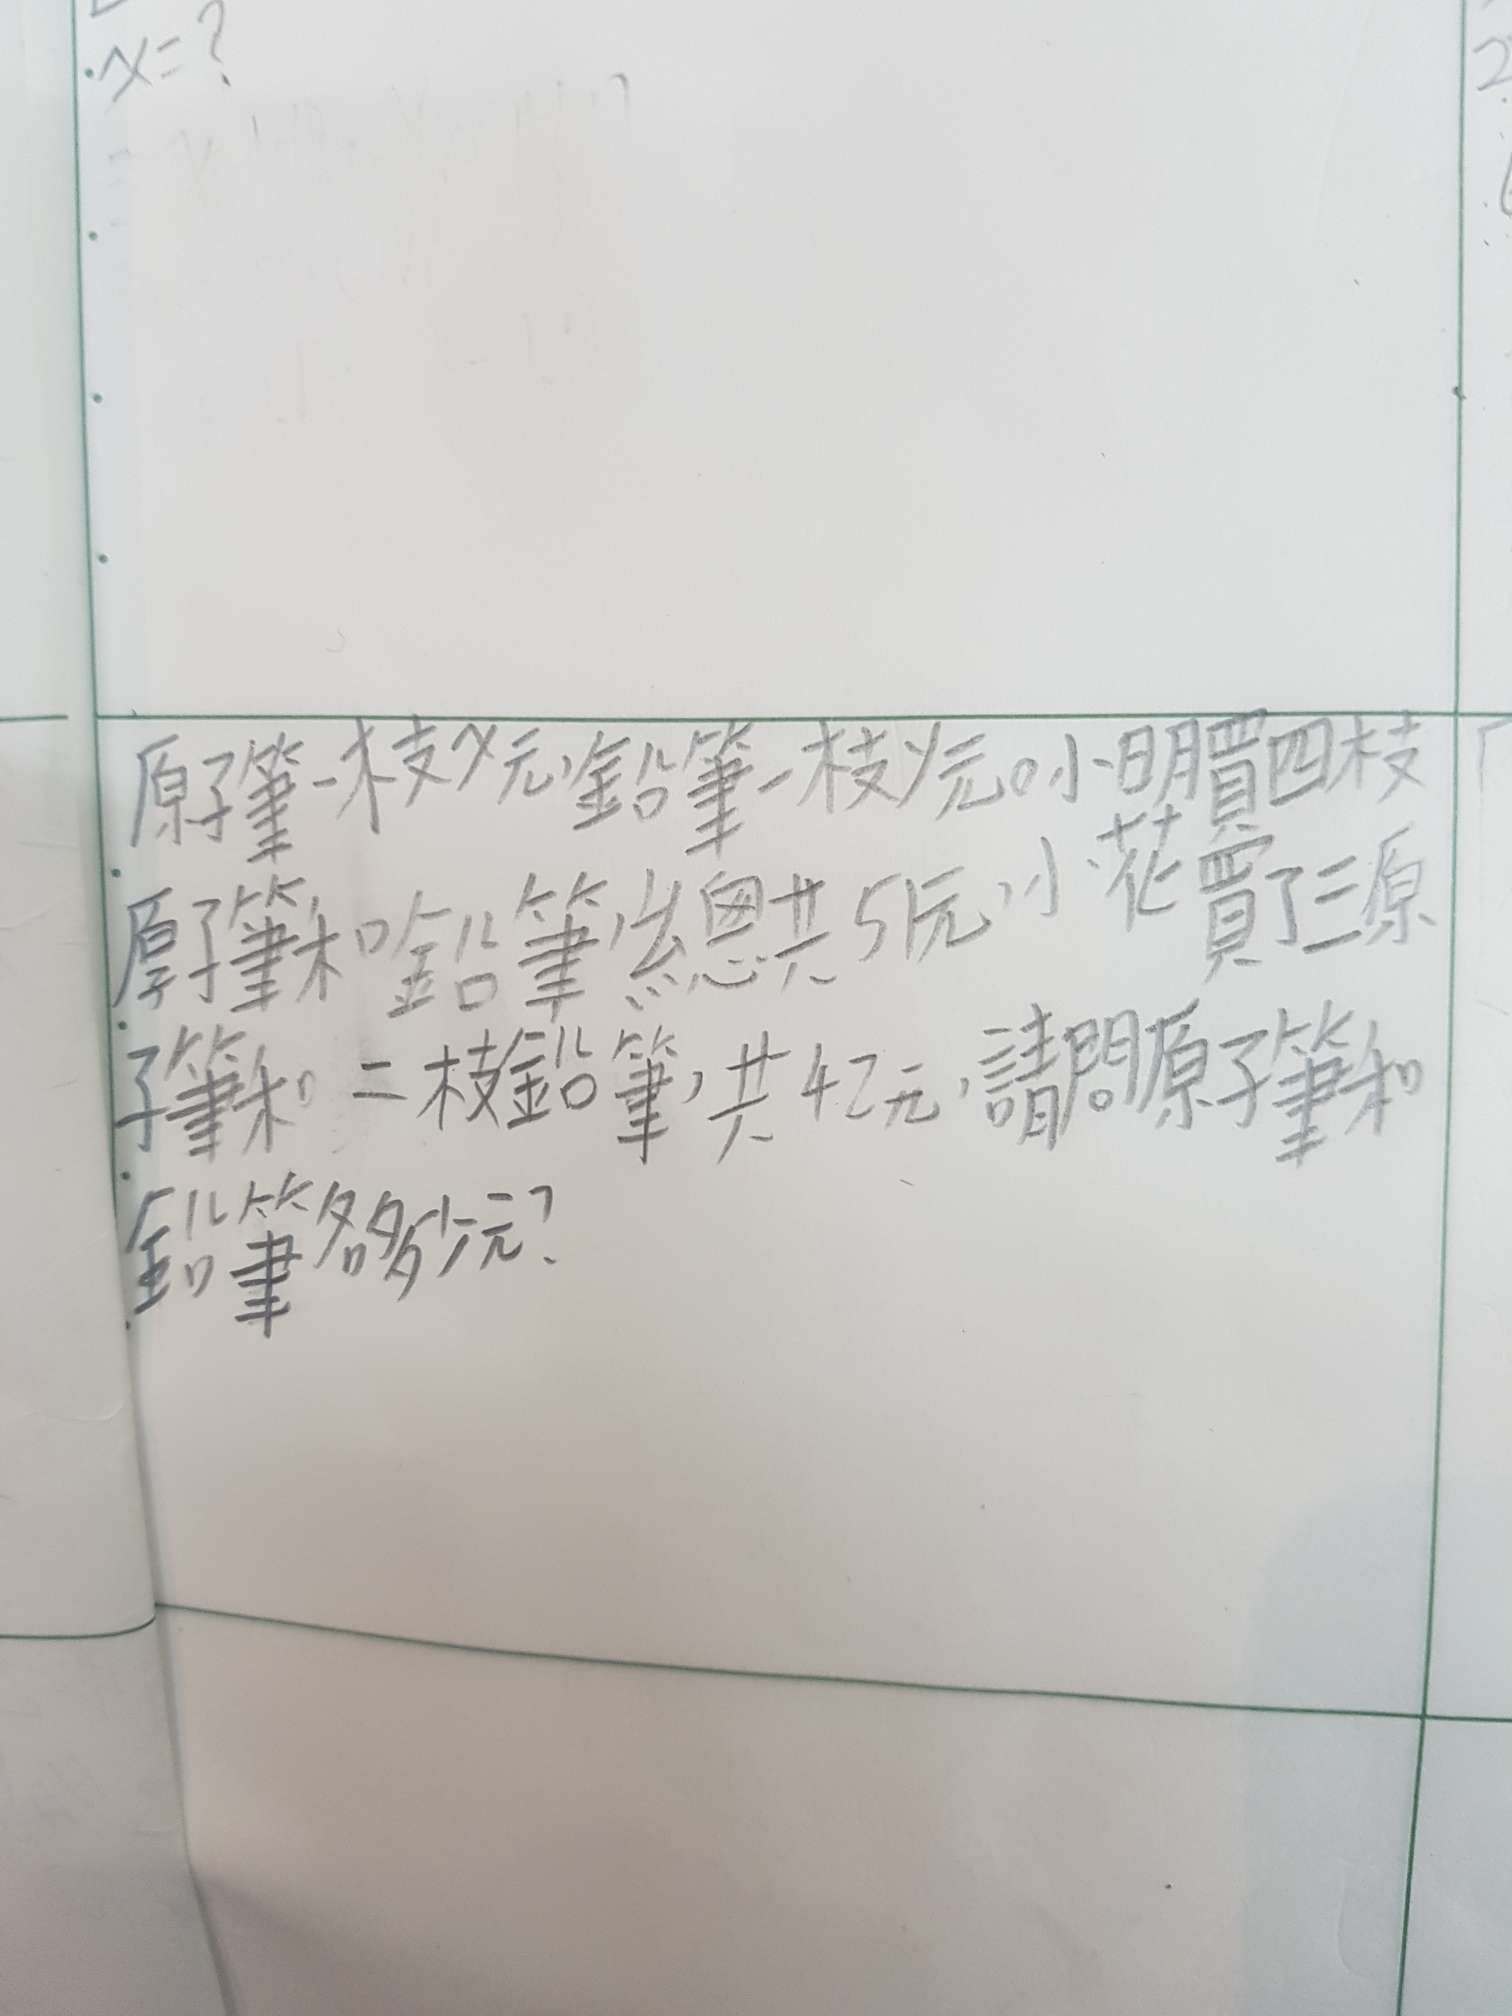 x=?
原子筆一枝x元,鉛筆一枝y元。小明買四枝
原子筆和鉛筆,總共51元,小花買了三原
子筆和二枝鉛筆,共42元,請問原子筆和
鉛筆各多少元?
2.